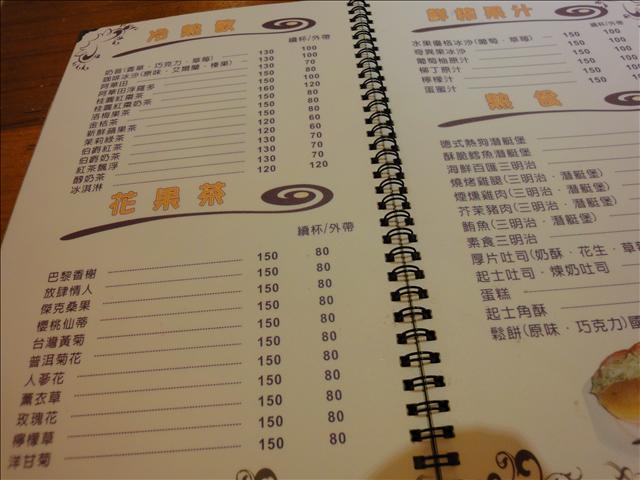 冷熱飲
續杯/外帶
奶昔(香草．巧克力．草莓) 130 100
咖啡冰沙(原味．艾爾蘭．榛果) 130 100
阿華田 130 70
阿華田淨羅多
桂圓紅棗茶
桂圓紅棗奶茶
洛梅果茶
金桔茶
新鮮蘋果茶
茉莉綠茶
伯爵紅茶
伯爵奶茶
紅茶飄浮
醇奶茶
冰淇淋
花果茶
續杯/外帶
巴黎香榭 150 80
放肆情人 150 80
傑克桑果 150 80
櫻桃仙蒂 150 80
台灣黃菊 150 80
普洱菊花 150 80
人蔘花 150 80
薰衣草 150 80
玫瑰花 150 80
檸檬草 150 80
洋甘菊 150 80
鮮榨果汁
續杯/外帶
水果優格冰沙(葡萄．草莓) 150 100
奇異果冰沙 150 100
葡萄柚原汁 150 100
柳丁原汁
檸檬汁
蛋蜜汁
熱食
德式熱狗潛艇堡
酥脆鱈魚潛艇堡
海鮮百匯三明治
燒烤雞腿(三明治．潛艇堡)
煙燻雞肉(三明治．潛艇堡)
芥茉豬肉(三明治．潛艇堡)
鮪魚(三明治．潛艇堡)
素食三明治
厚片吐司(奶酥．花生．草莓
起士吐司．煉奶吐司
蛋糕
起士角酥
鬆餅(原味．巧克力)